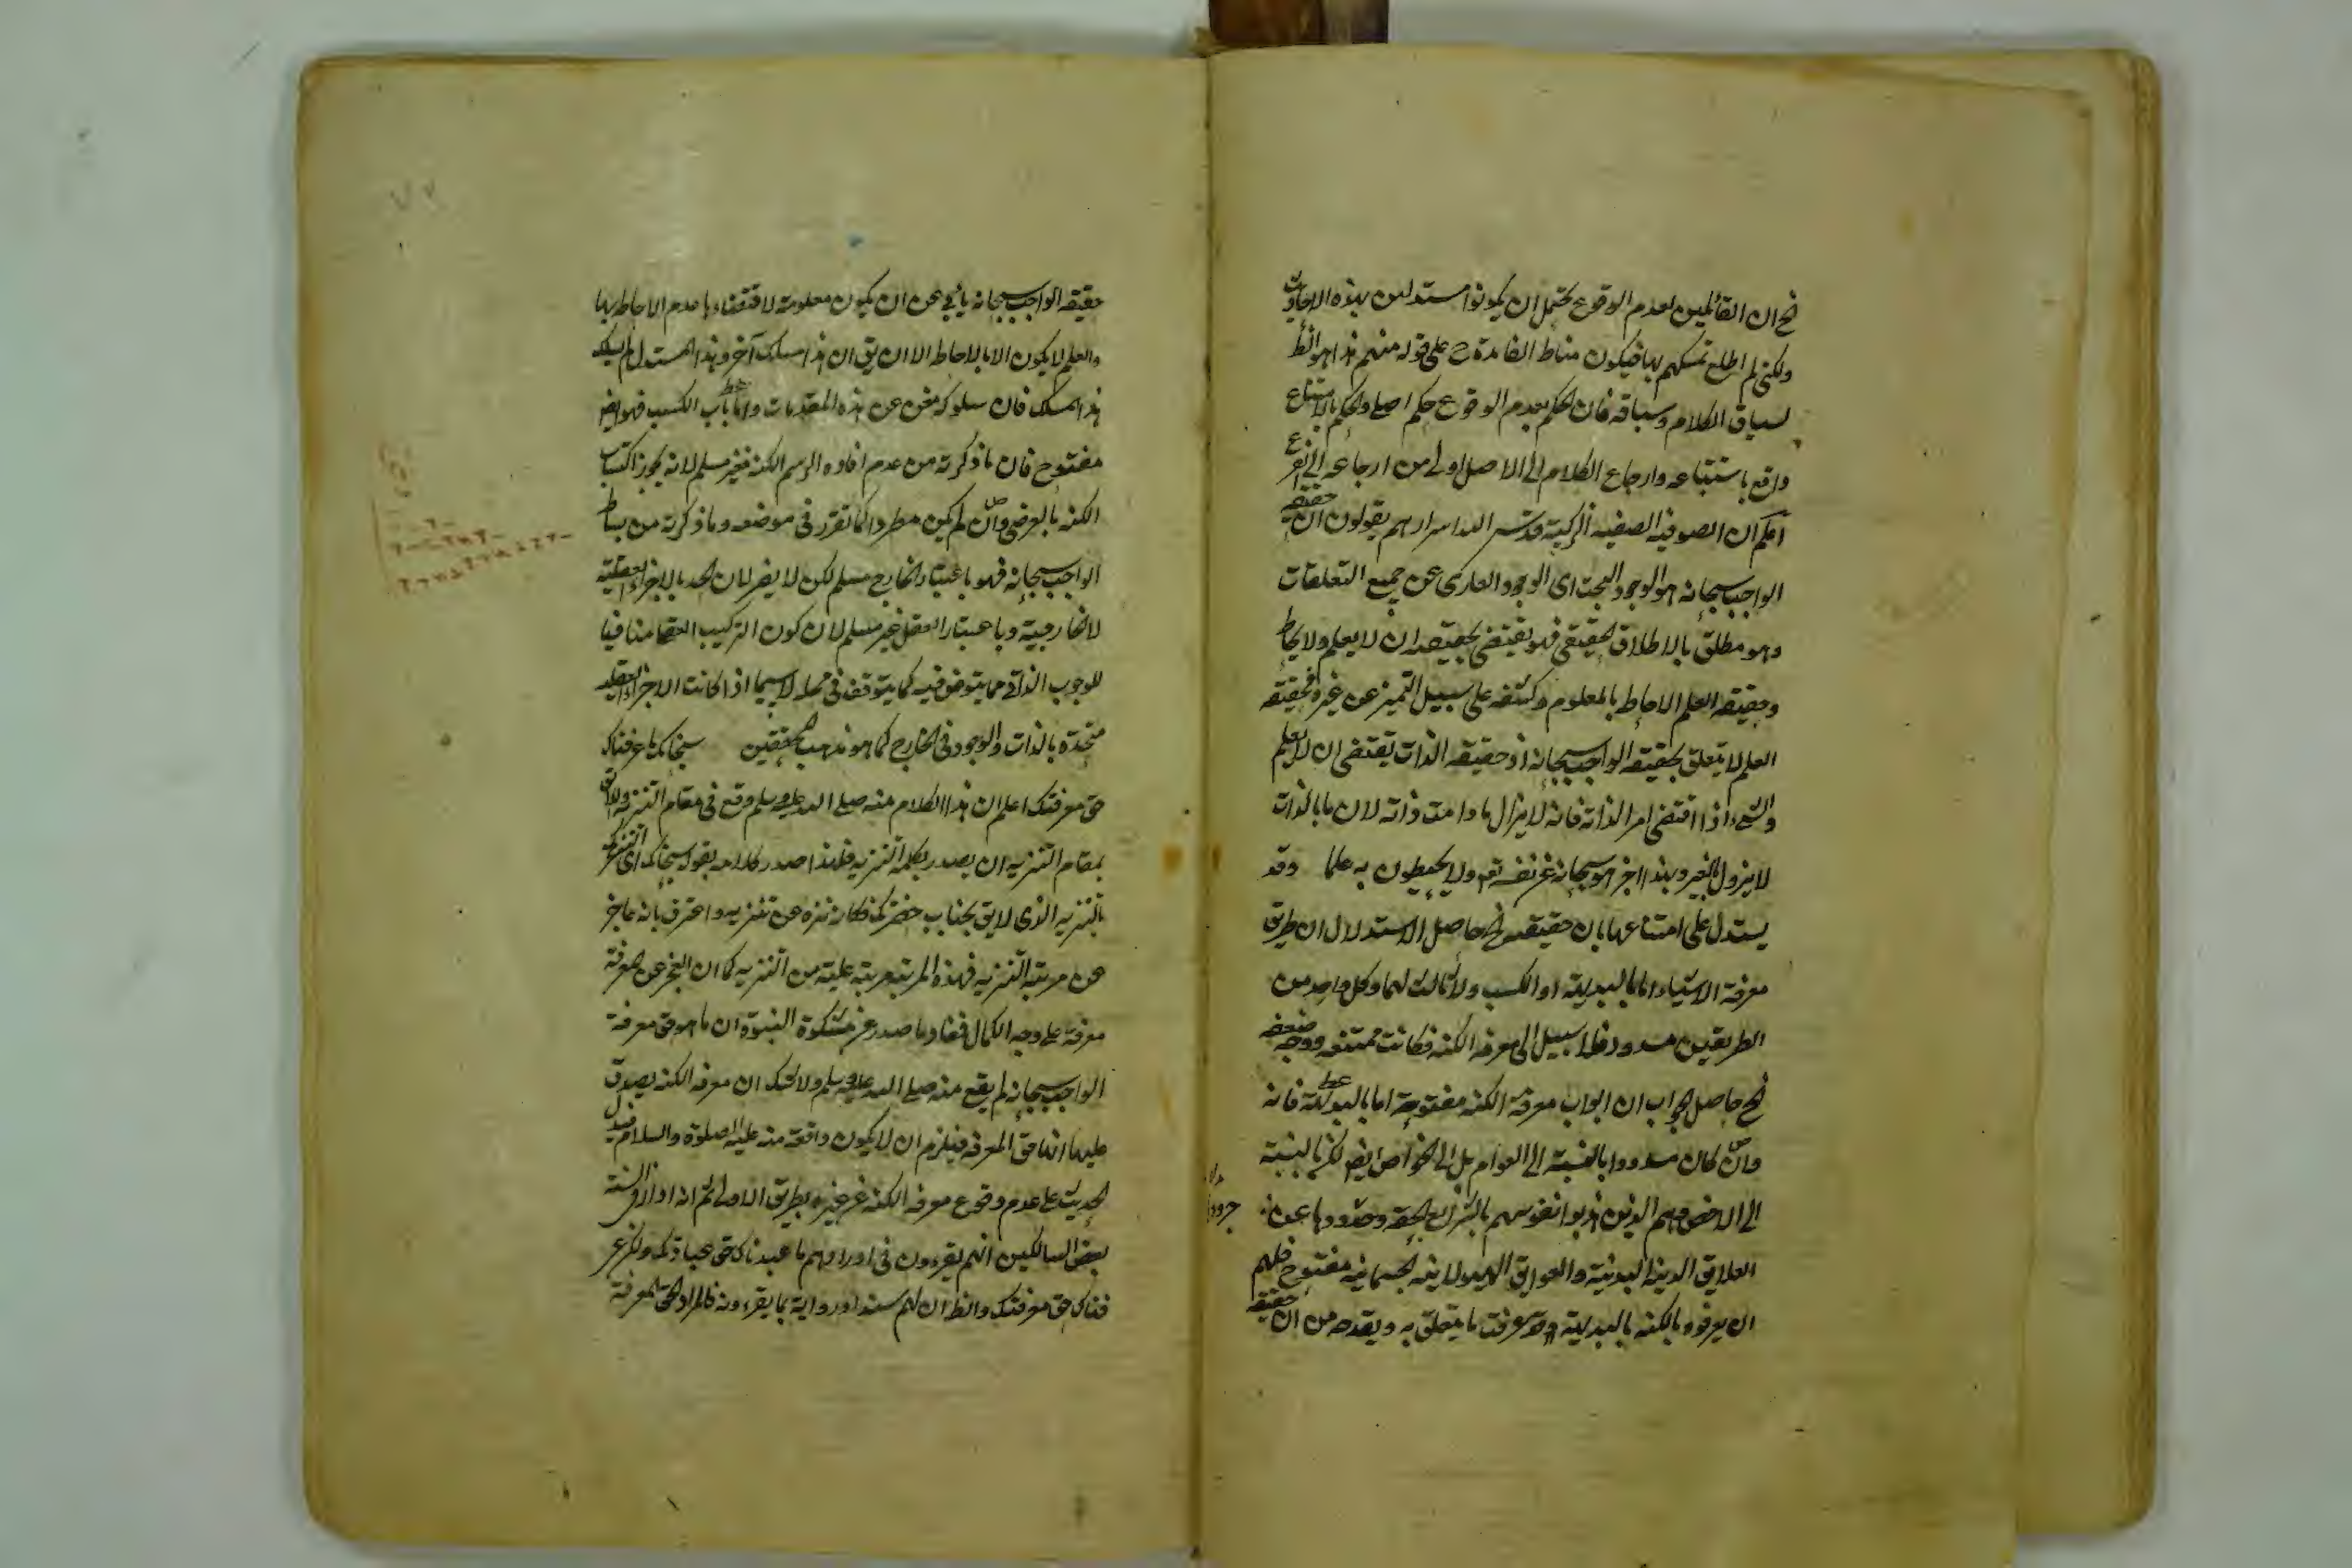 فح ان القائلين بعدم الوقوع يحتمل ان يكونوا مستدلين بهذه الاحاديث
ولكنى لم اطلع تمسكهم بها فيكون مناط الفائدة ح على قوله منهم هذا هو الظ
لسياق الكلام وسباقه فان الحكم بعدم الوقوع حكم اصلى والحكم بالامتناع
واقع باستتباعه وارجاع الكلام الى الاصل اولى من ارجاعه الى الفرع
اعلم ان الصوفية الصفية الزكية قدس الله اسرارهم يقولون ان حقيقة
الواجب سبحانه هو الوجود البحت اى الوجود العارى عن جميع التعلقات
وهو مطلق بالاطلاق الحقيقى فهو يقتضى بحقيقته ان لا يعلم ولا يحاط
وحقيقة العلم الاحاطة بالمعلوم وكشفه على سبيل التميز عن غيره فحقيقة
العلم لا يتعلق بحقيقة الواجب سبحانه اذ حقيقة الذات يقتضى ان لا يعلم
والشىء اذا اقتضى امرا لذاته فانه لا يزال ما دامت ذاته لان ما بالذات
لا يزول بالغير وبهذا اخبر هو سبحانه عن نفسه بقوله ولا يحيطون به علما وقد
يستدل على امتناعها بان حقيقته فح حاصل الاستدلال ان طريق
معرفة الاشياء اما بالبديهة او الكسب ولا ثالث لهما وكل واحد من
الطريقين مسدود فلا سبيل الى معرفة الكنه فكانت ممتنعة ووجه ضعفه
فح حاصل الجواب ان ابواب معرفة الكنه مفتوحة اما بالبديهة فانه
وان كان مسدودا بالنسبة الى العوام بل الى الخواص ايضا لكن بالنسبة
الى الاخص وهم الذين هذبوا نفوسهم بالشرائع الحقة وجردوها عن
العلائق الدنية البدنية والعوائق الهيولانية الجسمانية مفتوح فلهم
ان يعرفوه بالكنه بالبديهة وقد عرفت ما يتعلق به ويقدحه من ان حقيقة
حقيقة الواجب سبحانه يأبى عن ان يكون معلومة لاقتضاءها عدم الاحاطة بها
والعلم لا يكون الا بالاحاطة الا ان يق ان هذا مسلك آخر وهذا المستدل لم يسلك
هذا المسلك فان سلوكه مغن عن هذه المقدمات واما باب الكسب فهو ايضا
مفتوح فان ما ذكرته من عدم افادة الرسم الكنه فغير مسلم لانه يجوز اكتساب
الكنه بالعرضى وان لم يكن مطردا كما تقرر فى موضعه وما ذكرته من بساطة
الواجب سبحانه فهو باعتبار الخارج مسلم لكن لا يضر لان الحد بالاجزاء العقلية
لا الخارجية وباعتبار العقل غير مسلم لان كون التركيب العقلى منافيا
للوجوب الذاتى مما يتوقف فيه كما يتوقف فى محله لا سيما اذا كانت الاجزاء العقلية
متحدة بالذات والوجود فى الخارج كما هو مذهب المحققين سبحانك ما عرفناك
حق معرفتك اعلم ان هذا الكلام منه صلى الله عليه وسلم وقع فى مقام التنزيه واللائق
بمقام التنزيه ان يصدر بكلمة التنزيه فلهذا صدر كلامه بقوله سبحانك اى
بالتنزيه الذى لايق بجناب حضرتك فكانه نزه عن تنزيهه واعترف بانه عاجز
عن مرتبة التنزيه فهذه المرتبة مرتبة علية من التنزيه كما ان العجز عن المعرفة
معرفة على وجه الكمال فمفاد ما صدر عن مشكوة النبوة ان ما هو حق معرفة
الواجب سبحانه لم يقع منه صلى الله عليه وسلم ولا شك ان معرفة الكنه يصدق
عليها انها حق المعرفة فيلزم ان لا يكون واقعة منه عليه الصلوة والسلام فيدل
الحديث على عدم وقوع معرفة الكنه عن غيره بطريق الاولى ثم انه اذا رأى السنة
بعض السالكين انهم يقرءون فى اورادهم ما عبدناك حق عبادتك ولكن عر
فناك حق معرفتك والظ ان لهم سندا ورواية بما يقرءونه فالمراد بحق المعرفة